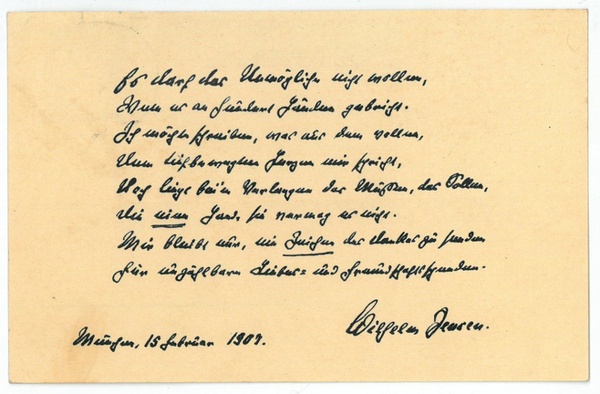 Es darf das Unmögliche nicht wollen,
Wem es an hundert Händen gebricht.
Ich möchte schreiben, was aus dem vollen,
Dem tiefbewegten Herzen mir spricht,
Doch liegt bei'm Verlangen das Müssen, das Sollen,
Die eine Hand, sie vermag es nicht.
Mir bleibt nur, ein Zeichen des Dankes zu senden
Für unzählbare Liebes- und Freundschaftsspenden.
Wilhelm Jensen.
München, 15 Februar 1907.